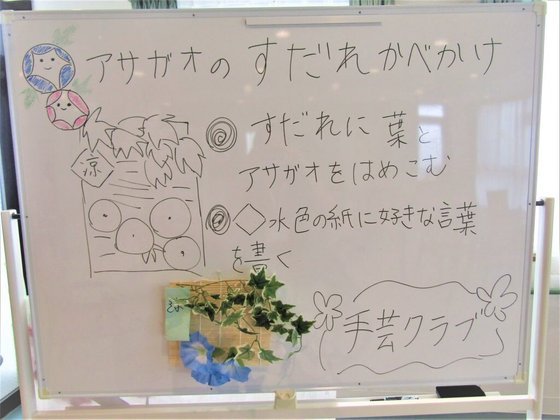 アサガオの すだれ かべかけ
涼
◎ すだれに 葉と
アサガオをはめこむ
◎ ◇水色の紙に好きな言葉
を書く
手芸クラブ